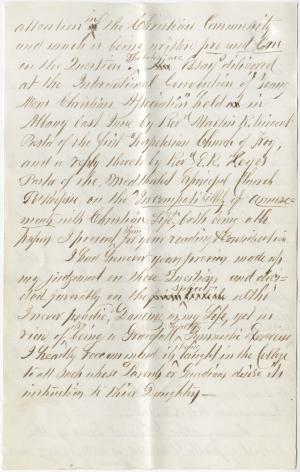 attention in the Christian Community
and much is being written pro and Con
on the Question The first are Essay delivered
at the International Convention of Young
Mens Christian Association held in
Albany last June by Revd Marvin R. Vincent
Pastor of the First Presbyterian Church of Troy,
and a reply thereto by Revd E.R. Keyes
Pastor of the Methodist Episcopal Church
on the Incompatibility of Amuse=
ments with Christian Life, both time
I present them for your reading & Consideration
I had however years previous made up
my judgment on these Questions and deci=
ded favorably on the altho
I never practic, Dancing in my Life, yet in
view of its being a Graceful & Healthy Gymnastic Exercise
I heartily Recommend its being taught in the College
to all such whose Parents or Guardians desire its
instruction to their Daughters —